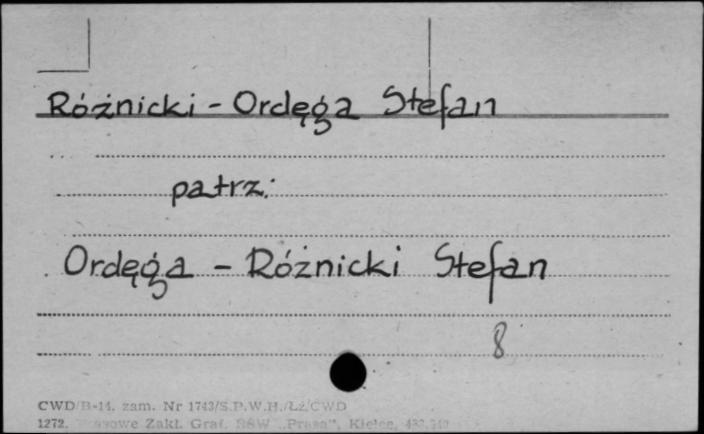 Różnicki - Ordęga Stefan
patrz:
Ordęga - Różnicki Stefan
8
CWD/B-14. zam. Nr 1743/S.P.W.H./Łż/CWD
1272. Zakł. Graf. RSW „Prasa", Kielce,